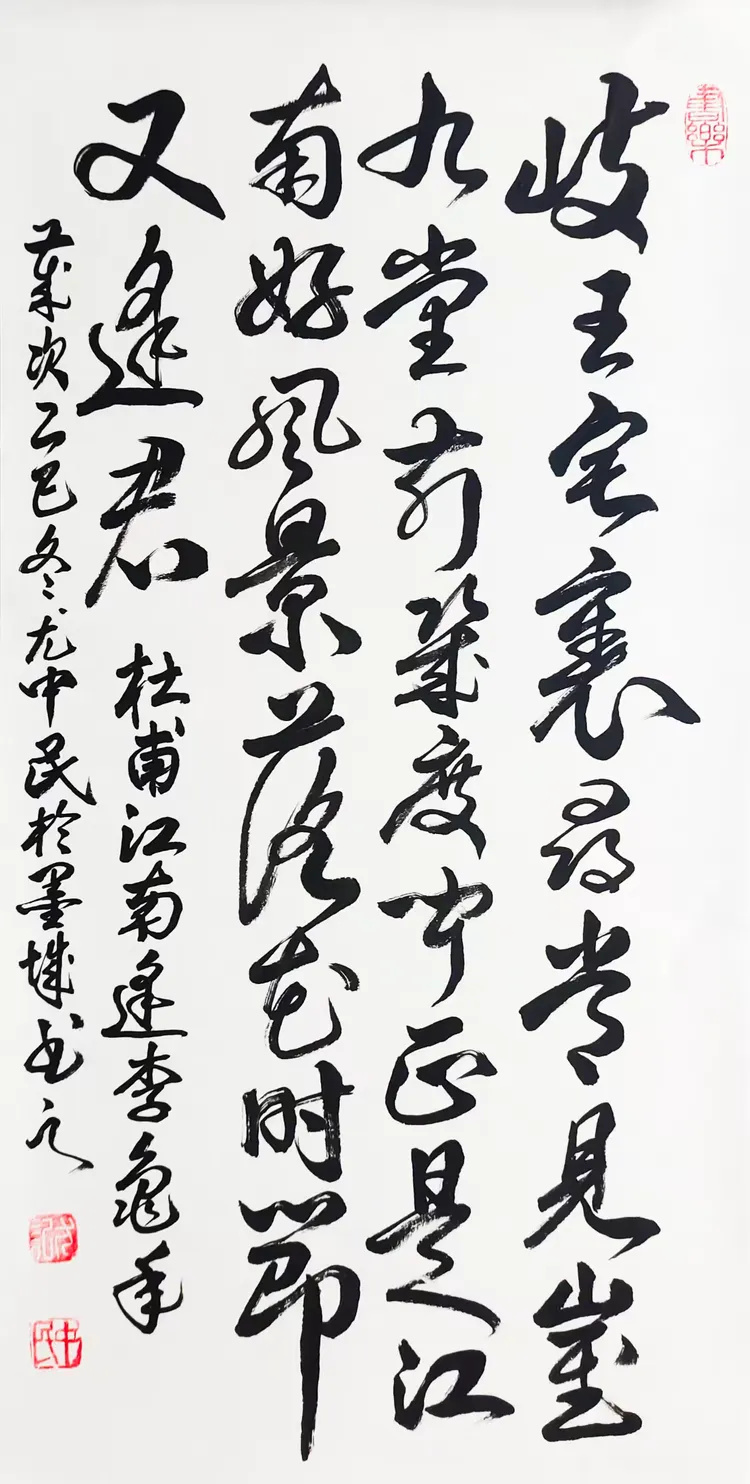 書樂
岐王宅裏尋常見崔
九堂前幾度聞正是江
南好風景落花時節
又逢君 杜甫江南逢李龜年
歲次乙巳冬尤中民於墨城書之